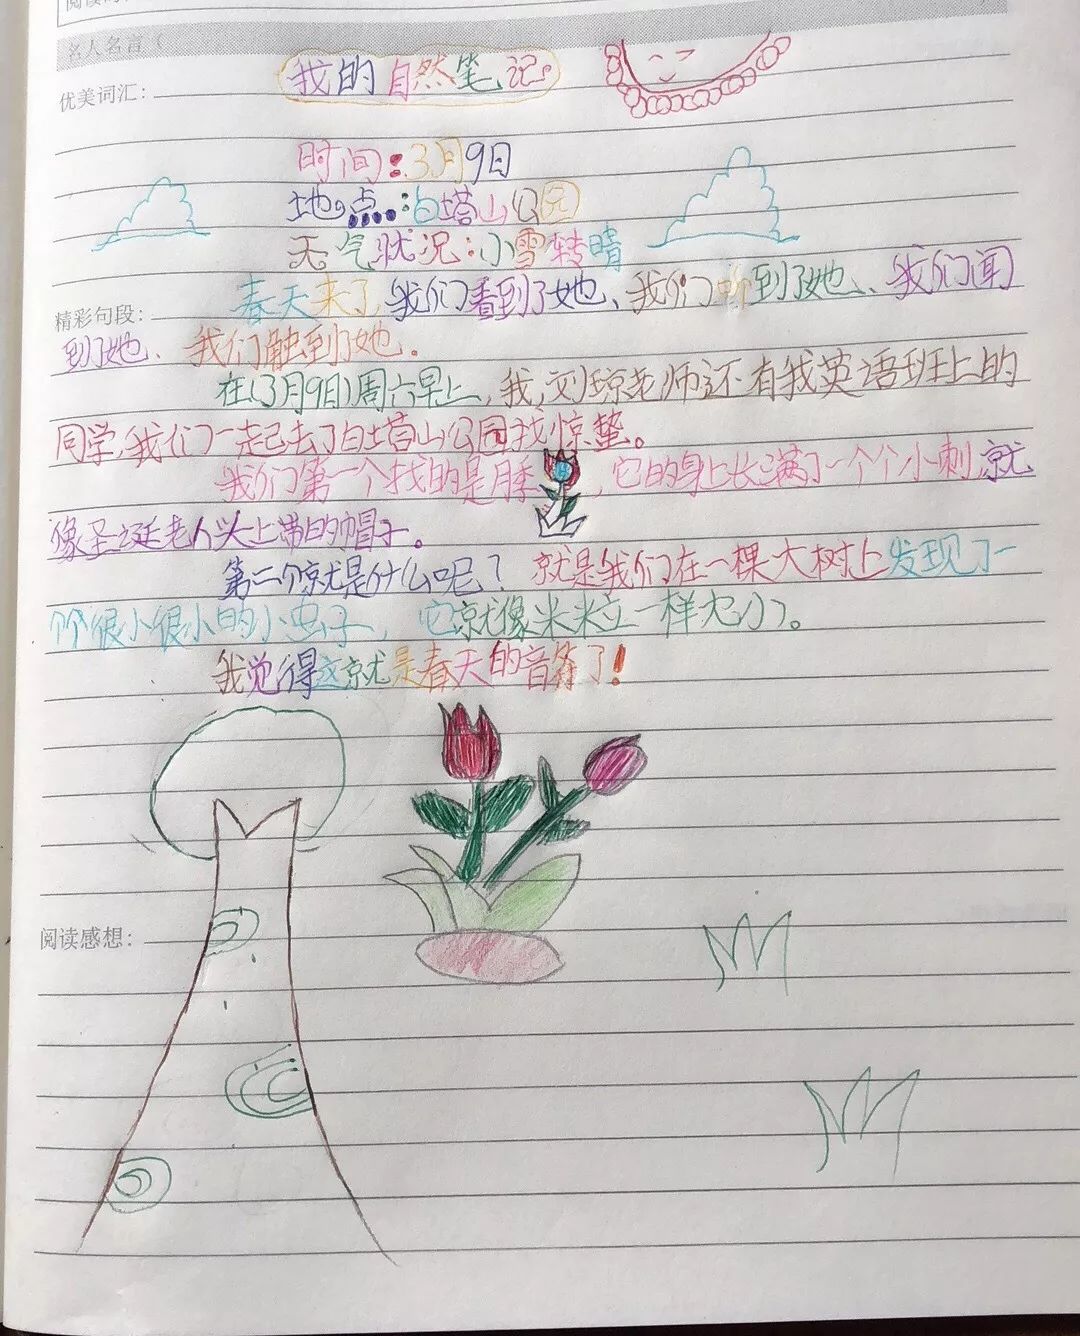 名人名言（
我的自然笔记。
优美词汇：
时间：3月9日
地点：白塔山公园
天气状况：小雪转晴
春天来了，我们看到了她、我们听到了她、我们闻
精彩句段：
到了她、我们触到了她。
在(3月9日)周六早上，我，刘琼老师还有我英语班上的
同学，我们一起去了白塔山公园找惊蛰。
我们第一个找的是月季，它的身上长满了一个个小刺，就
像圣诞老人头上带的帽子。
第二个就是什么呢？就是我们在一棵大树上发现了一
个很小很小的小虫子，它就像米米立一样大小。
我觉得这就是春天的音符了！
阅读感想：